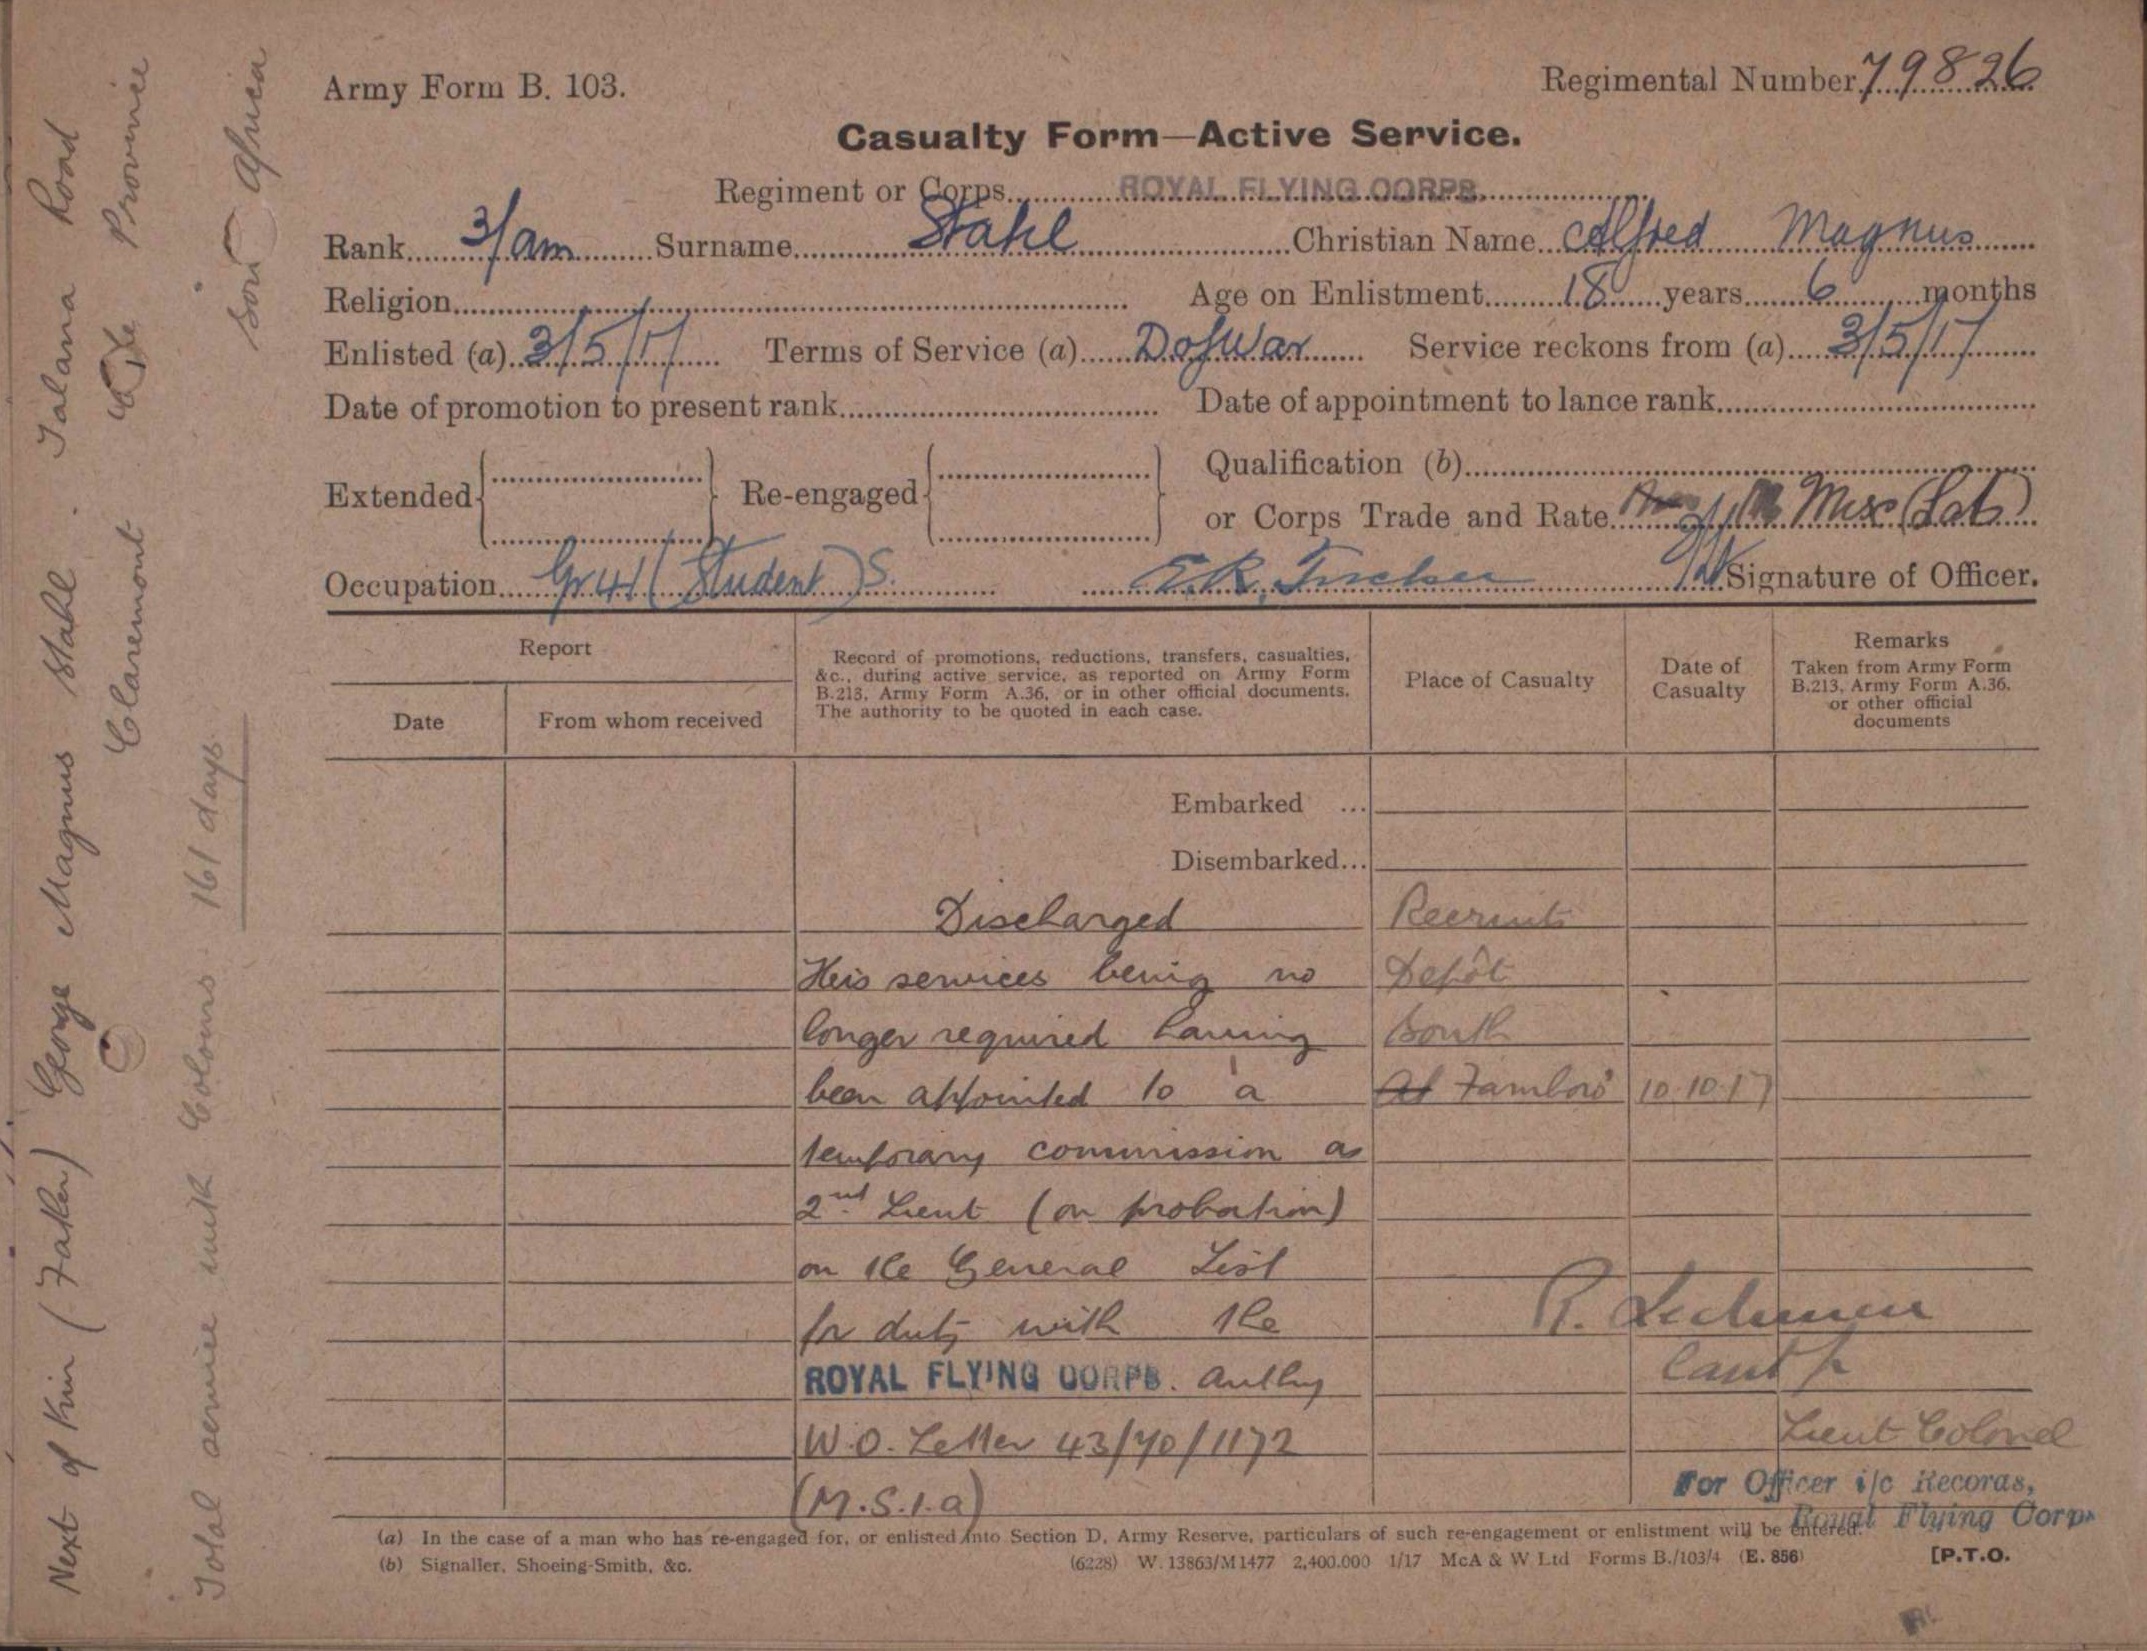 Army Form B. 103.
Regimental Number 79826
Casualty Form—Active Service.
Regiment or Corps ROYAL FLYING CORPS
Rank 3/am Surname Stahl Christian Name Alfred Magnus
Religion Age on Enlistment 18 years 6 months
Enlisted (a) 3/5/17 Terms of Service (a) DofWar Service reckons from (a) 3/5/17
Date of promotion to present rank Date of appointment to lance rank
Extended Re-engaged Qualification (b)
or Corps Trade and Rate Misc (Lab)
Occupation Gr 41 (Student) S. E.R. Fischer Signature of Officer.
Report
Date
From whom received
Record of promotions, reductions, transfers, casualties,
&c., during active service, as reported on Army Form
B.213, Army Form A.36, or in other official documents.
The authority to be quoted in each case.
Place of Casualty
Date of
Casualty
Remarks
Taken from Army Form
B.213, Army Form A.36,
or other official
documents
Embarked ...
Disembarked...
Discharged Recruits
His services being no Depôt
longer required having South
been appointed to a At Farnboro' 10.10.17
temporary commission as
2nd Lieut (on probation)
on the General List
for duty with the
ROYAL FLYING CORPS. Authy
W.O. Letter 43/70/1172
(M.S.1.a)
R.
Capt fr
Lieut Colonel
For Officer i/c Records,
Royal Flying Corps
(a) In the case of a man who has re-engaged for, or enlisted into Section D, Army Reserve, particulars of such re-engagement or enlistment will be entered.
(b) Signaller, Shoeing-Smith, &c.
(6228) W. 13863/M1477 2,400.000 1/17 McA & W Ltd Forms B./103/4 (E. 856)
[P.T.O.
Next of Kin (Father) George Magnus Stahl. Talana Road
Claremont Cape Province
Total service with Colours 161 days
South Africa